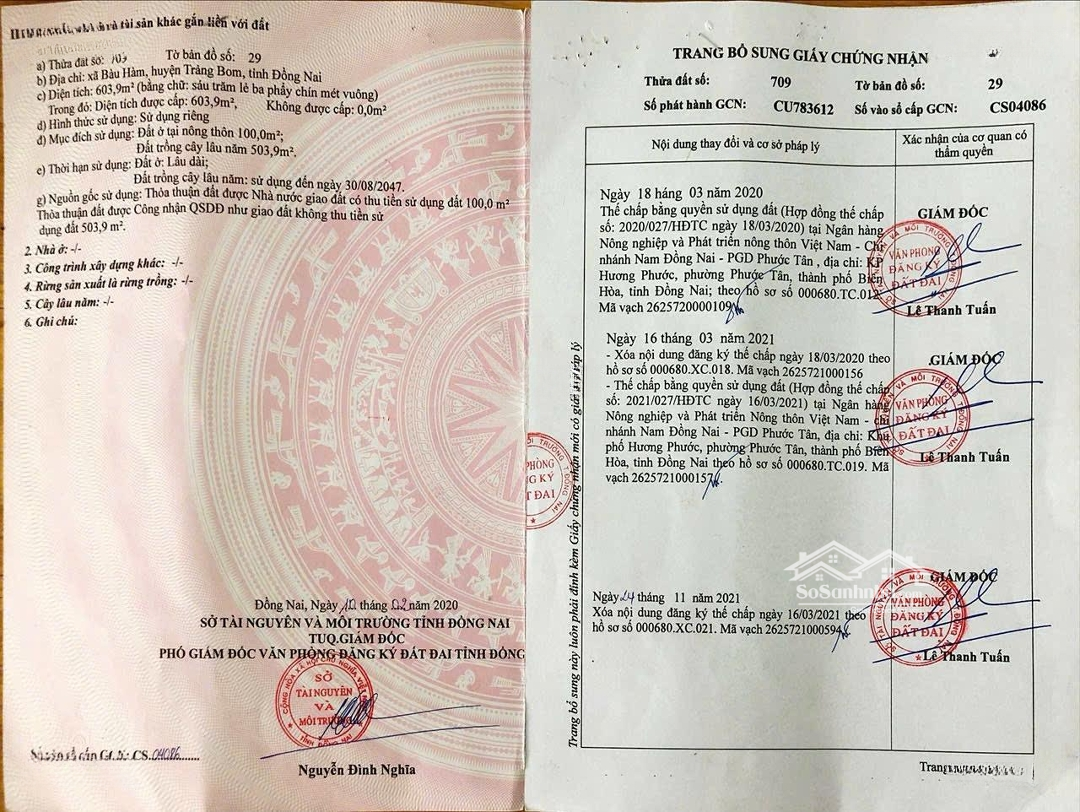 và tài sản khác gắn liền với đất
a) Thửa đất số: 709 Tờ bản đồ số: 29
b) Địa chỉ: xã Bàu Hàm, huyện Trảng Bom, tỉnh Đồng Nai
c) Diện tích: 603,9m² (bằng chữ: sáu trăm lẻ ba phẩy chín mét vuông)
Trong đó: Diện tích được cấp: 603,9m², Không được cấp: 0,0m²
d) Hình thức sử dụng: Sử dụng riêng
đ) Mục đích sử dụng: Đất ở tại nông thôn 100,0m²;
Đất trồng cây lâu năm 503,9m².
e) Thời hạn sử dụng: Đất ở: Lâu dài;
Đất trồng cây lâu năm: sử dụng đến ngày 30/08/2047.
g) Nguồn gốc sử dụng: Thỏa thuận đất được Nhà nước giao đất có thu tiền sử dụng đất 100,0 m²
Thỏa thuận đất được Công nhận QSDĐ như giao đất không thu tiền sử
dụng đất 503,9 m².
2. Nhà ở: -/-
3. Công trình xây dựng khác: -/-
4. Rừng sản xuất là rừng trồng: -/-
5. Cây lâu năm: -/-
6. Ghi chú:
Đồng Nai, Ngày 10 tháng 02 năm 2020
SỞ TÀI NGUYÊN VÀ MÔI TRƯỜNG TỈNH ĐỒNG NAI
TUQ.GIÁM ĐỐC
PHÓ GIÁM ĐỐC VĂN PHÒNG ĐĂNG KÝ ĐẤT ĐAI TỈNH ĐỒNG
CỘNG HÒA XÃ HỘI CHỦ NGHĨA VIỆT NAM
SỞ
TÀI NGUYÊN
VÀ
MÔI TRƯỜNG
TỈNH ĐỒNG NAI
Nguyễn Đình Nghĩa
CS 04086
TRANG BỔ SUNG GIẤY CHỨNG NHẬN
Thửa đất số: 709 Tờ bản đồ số: 29
Số phát hành GCN: CU783612 Số vào sổ cấp GCN: CS04086
Nội dung thay đổi và cơ sở pháp lý
Xác nhận của cơ quan có
thẩm quyền
Ngày 18 tháng 03 năm 2020
Thế chấp bằng quyền sử dụng đất (Hợp đồng thế chấp
số: 2020/027/HĐTC ngày 18/03/2020) tại Ngân hàng
Nông nghiệp và Phát triển nông thôn Việt Nam - Chi
nhánh Nam Đồng Nai - PGD Phước Tân , địa chỉ: KP
Hương Phước, phường Phước Tân, thành phố Biên
Hòa, tỉnh Đồng Nai; theo hồ sơ số 000680.TC.012.
Mã vạch 2625720000109
GIÁM ĐỐC
VĂN PHÒNG
ĐĂNG KÝ
ĐẤT ĐAI
Lê Thanh Tuấn
Ngày 16 tháng 03 năm 2021
- Xóa nội dung đăng ký thế chấp ngày 18/03/2020 theo
hồ sơ số 000680.XC.018. Mã vạch 2625721000156
- Thế chấp bằng quyền sử dụng đất (Hợp đồng thế chấp
số: 2021/027/HĐTC ngày 16/03/2021) tại Ngân hàng
Nông nghiệp và Phát triển Nông thôn Việt Nam – chi
nhánh Nam Đồng Nai - PGD Phước Tân, địa chỉ: Khu
phố Hương Phước, phường Phước Tân, thành phố Biên
Hòa, tỉnh Đồng Nai theo hồ sơ số 000680.TC.019. Mã
vạch 2625721000157
GIÁM ĐỐC
VĂN PHÒNG
ĐĂNG KÝ
ĐẤT ĐAI
Lê Thanh Tuấn
Ngày 24 tháng 11 năm 2021
Xóa nội dung đăng ký thế chấp ngày 16/03/2021 theo
hồ sơ số 000680.XC.021. Mã vạch 2625721000594
GIÁM ĐỐC
VĂN PHÒNG
ĐĂNG KÝ
ĐẤT ĐAI
Lê Thanh Tuấn
SoSanhNha.com
Trang bổ sung này luôn phải đính kèm Giấy chứng nhận mới có giá trị pháp lý
Trang